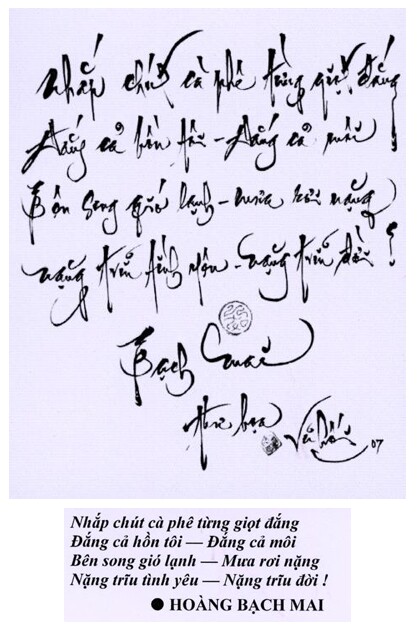 Nhắp chút cà phê từng giọt đắng
Đắng cả hồn tôi – Đắng cả môi
Bên song gió lạnh – mưa rơi nặng
nặng trĩu tình yêu – nặng trĩu đời !
Bạch Mai
thư họa Vũ Hối 07
Nhắp chút cà phê từng giọt đắng
Đắng cả hồn tôi — Đắng cả môi
Bên song gió lạnh — Mưa rơi nặng
Nặng trĩu tình yêu — Nặng trĩu đời !
● HOÀNG BẠCH MAI